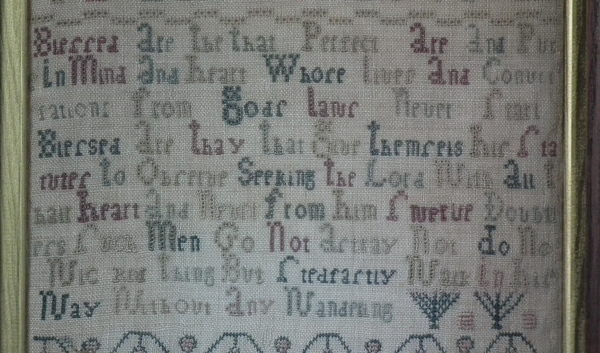 Blessed are the that Perfect are and Pur
in Mind and heart Whose lives and Conver
sations from Gods laws Never start
Blessed are thay that Give themsels his sta
tutes to Observe Seeking the Lord With all t
hair heart and Never from him swerve Doubtl
ess such Men Go Not astray Not do No
Wic ked thing But stedfastly Walk in his
Way Without any Wandering